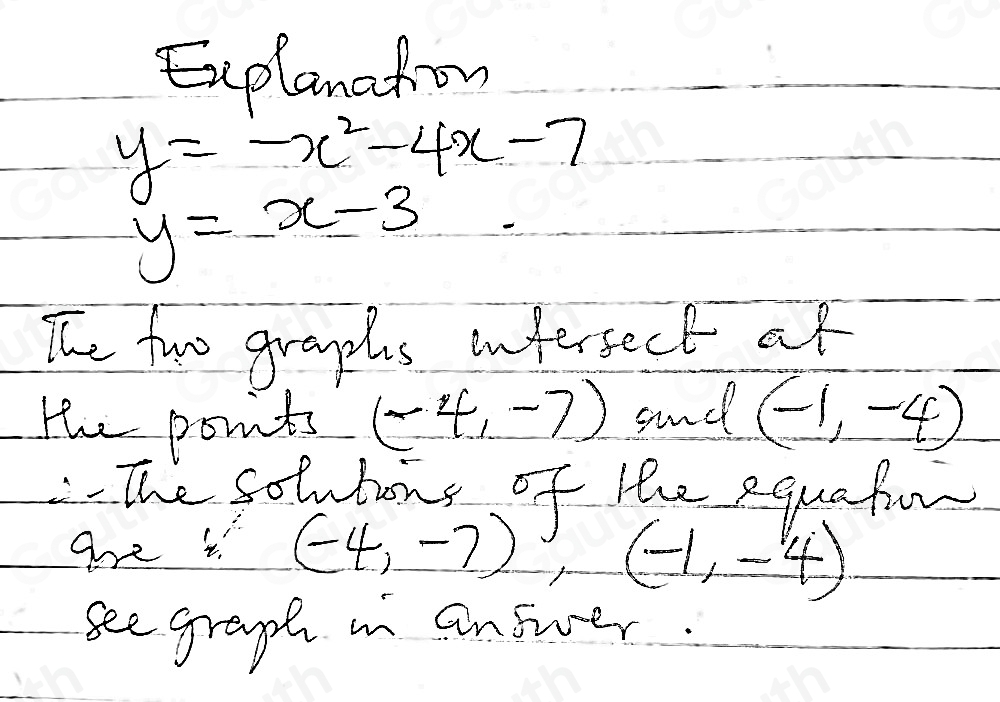 Explanation
y = -x² - 4x - 7
y = x - 3 .
The two graphs intersect at
the points (-4, -7) and (-1, -4)
∴ The solutions of the equation
are (-4, -7), (-1, -4)
see graph in answer.